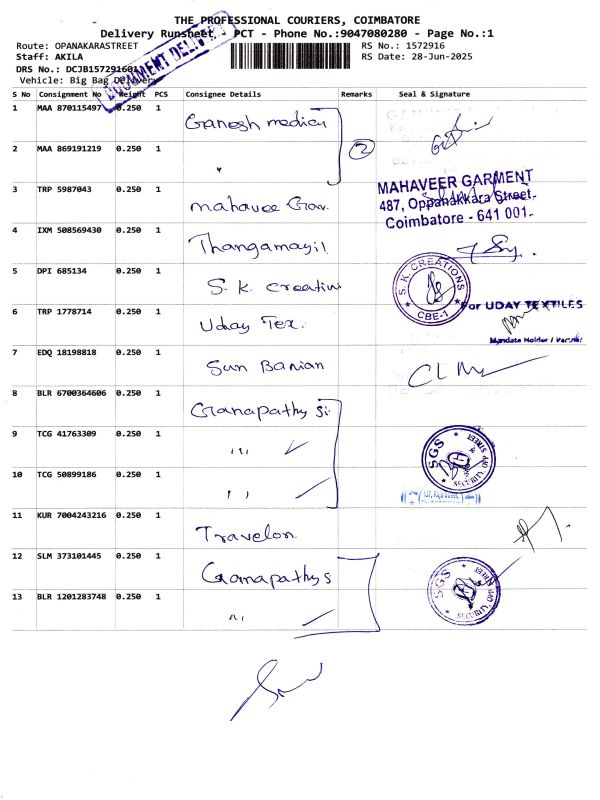 THE PROFESSIONAL COURIERS, COIMBATORE
Delivery Runsheet - PCT - Phone No.:9047080280 - Page No.:1
Route: OPANAKARASTREET RS No.: 1572916
Staff: AKILA RS Date: 28-Jun-2025
DRS No.: DCJB1572916011
DOCUMENT DELIVERY
Vehicle: Big Bag Delivery
S No Consignment No Weight PCS Consignee Details Remarks Seal & Signature
1 MAA 870115497 0.250 1 Ganesh medica
2 MAA 869191219 0.250 1 " 2
3 TRP 5987043 0.250 1 mahavee Gar.
MAHAVEER GARMENT
487, Oppanakkara Street,
Coimbatore - 641 001.
4 IXM 508569430 0.250 1 Thangamayil
5 DPI 685134 0.250 1 S. K. Creation
S. K. CREATIONS
CBE-1
6 TRP 1778714 0.250 1 Uday Tex.
For UDAY TEXTILES
Mandate Holder / Partner
7 EDQ 18198818 0.250 1 Sun Banian
8 BLR 6700364606 0.250 1 Ganapathy Si
9 TCG 41763309 0.250 1 "
SGS
SECURITY
10 TCG 50899186 0.250 1 "
11 KUR 7004243216 0.250 1 Travelon
12 SLM 373101445 0.250 1 Ganapathy S
SGS
SECURITY
13 BLR 1201283748 0.250 1 "